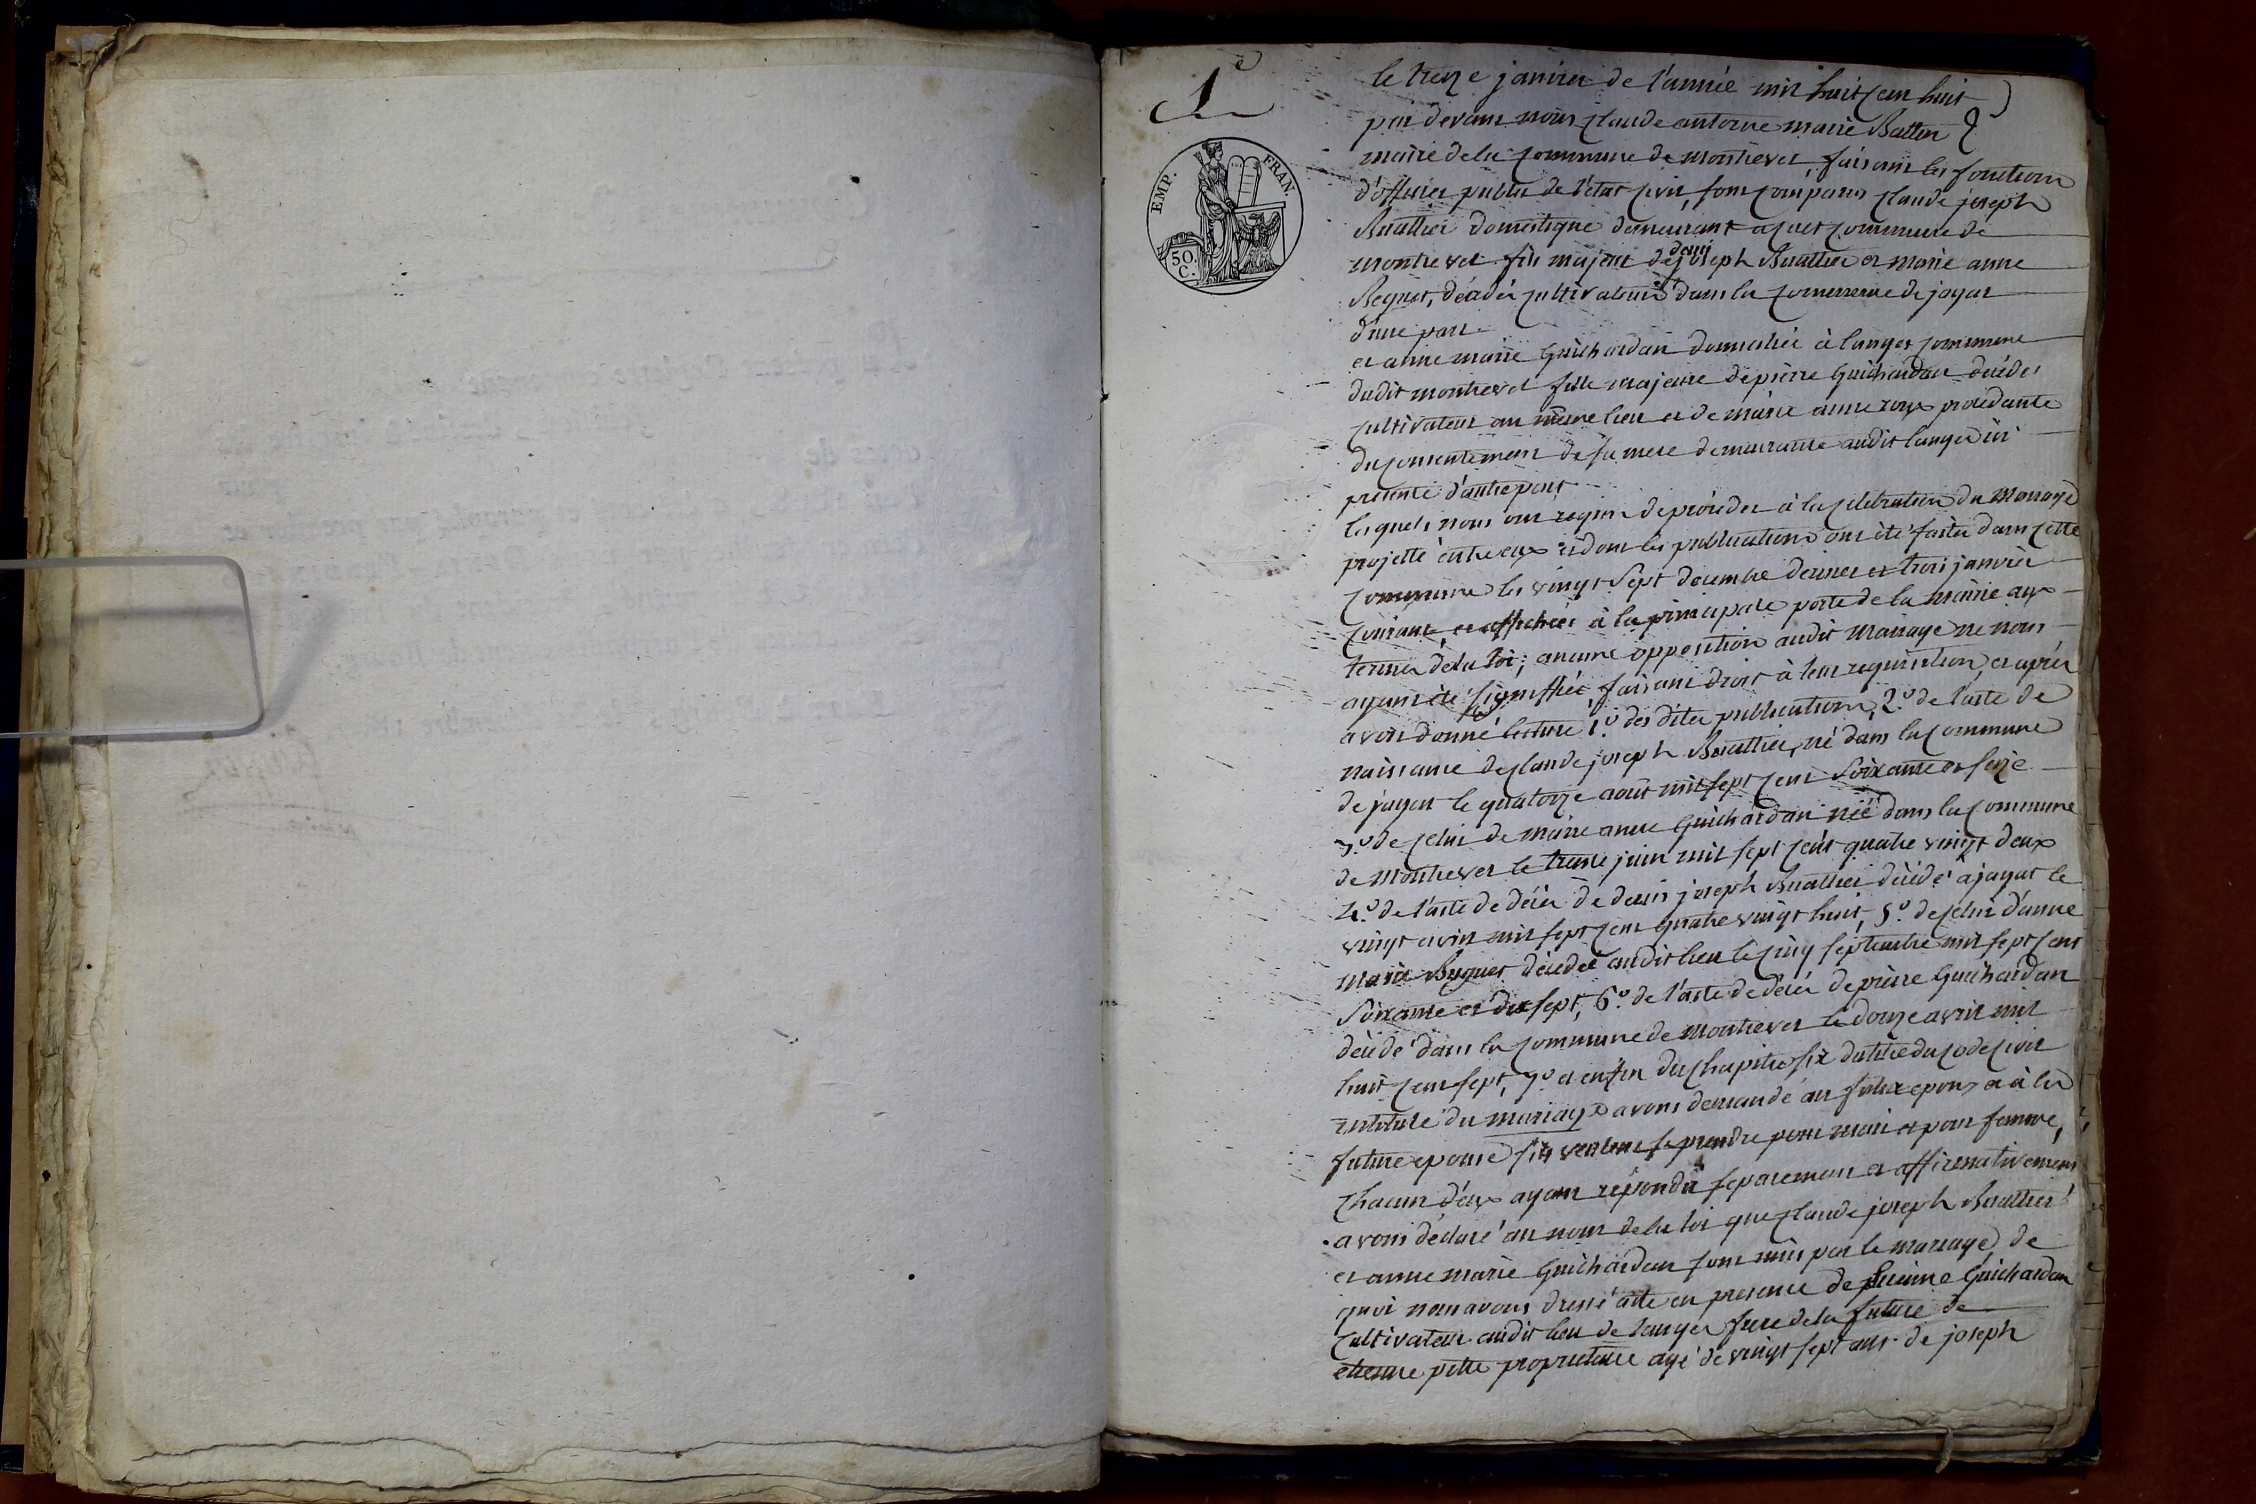 1e
EMP. FRAN.
50.
C.
le treize janvier de l'année mil huit cent huit
par devant nous claude antoine marie
maire de la commune de montrevel faisant les fonctions
d'officier public de l'état civil, sont comparus claude joseph
Buathier domestique demeurant a cuet commune de
montrevel fils majeur de denis joseph Buathier et marie anne
décédés cultivateurs dans la commune de jayat
d'une part
et anne marie Guichardan domiciliée à langes commune
dudit montrevel fille majeure de pierre Guichardan décédé
cultivateur au même lieu et de marie anne roux procedante
du consentement de sa mere demeurante audit langes ici
presente d'autre part
lesquels nous ont requis de procéder à la célébration du mariage
projetté entre eux et dont les publications ont été faites dans cette
commune les vingt sept decembre dernier et trois janvier
courant, et affichées à la principale porte de la mairie aux
termes de la loi; aucune opposition audit mariage ne nous
ayant été signiffiée faisant droit à leur requisition, et après
avoir donné lecture 1.º des dites publications, 2.º de l'acte de
naissance de claude joseph Buathier, né dans la commune
de jayat le quatorze aout mil sept cent soixante et seize
3.º de celui de marie anne Guichardan née dans la commune
de montrevel le treise juin mil sept cent quatre vingt deux
4.º de l'acte de décès de denis joseph Buathier décédé a jayat le
vingt avril mil sept cent quatre vingt huit, 5.º de celui d'anne
marie décédée audit lieu le cinq septembre mil sept cent
soixante et dix sept, 6.º de l'acte de décès de pierre Guichardan
décédé dans la commune de montrevel le douze avril mil
huit cent sept, 7.º et enfin du chapitre six du titre du code civil
intitulé du mariage avons demandé au futur epoux et à la
future epouse s'ils veulent se prendre pour mari et pour femme,
chacun d'eux ayant répondu separement et affirmativement
avons déclaré au nom de la loi que claude joseph Buathier
et anne marie Guichardan sont unis par le mariage, de
quoi nous avons dressé acte en presence de Guichardan
cultivateur audit lieu de langes frere de la future de
etienne petit proprietaire agé de vingt sept ans de joseph